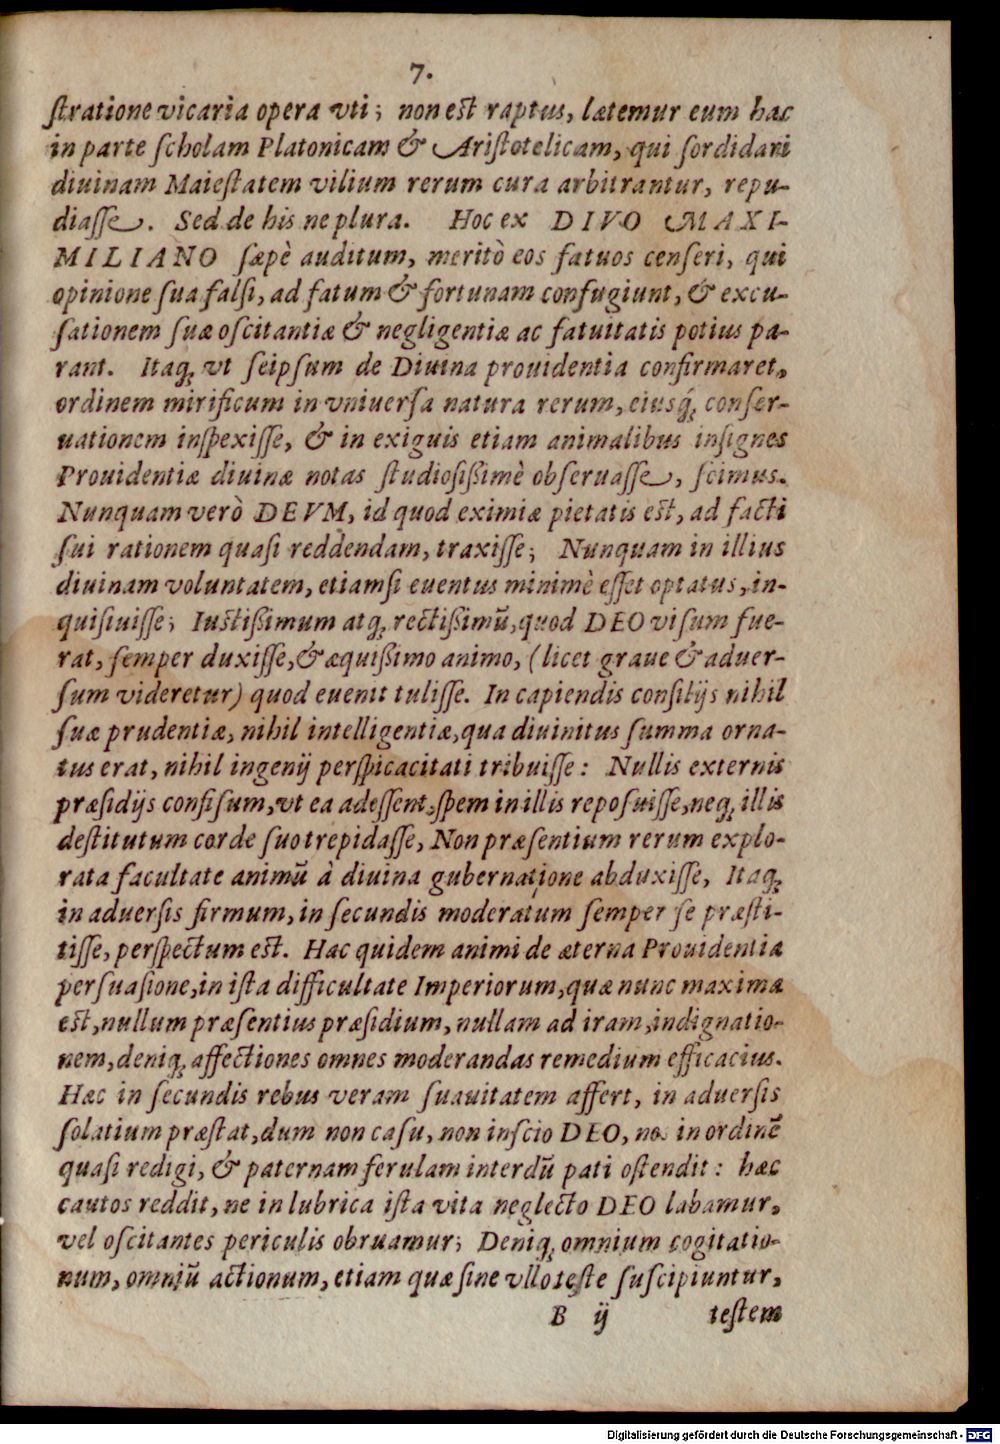 7.
ſtratione vicaria opera vti; non est raptus, lætemur eum hac
in parte ſcholam Platonicam & Ariſtotelicam, qui ſordidari
diuinam Maieſtatem vilium rerum cura arbitrantur, repu-
diaſſe. Sed de his ne plura. Hoc ex DIVO MAXI-
MILIANO ſæpè auditum, meritò eos fatuos cenſeri, qui
opinione ſua falſi, ad fatum & fortunam confugiunt, & excu-
ſationem ſuæ oſcitantiæ & negligentiæ ac fatuitatis potius pa-
rant. Itaq; vt ſeipſum de Diuina prouidentia confirmaret,
ordinem mirificum in vniuerſa natura rerum, eiusq́; conſer-
uationem inſpexiſſe, & in exiguis etiam animalibus inſignes
Prouidentiæ diuinæ notas ſtudioſißimè obſeruaſſe, ſcimus.
Nunquam verò DEVM, id quod eximiæ pietatis est, ad facti
ſui rationem quaſi reddendam, traxiſſe; Nunquam in illius
diuinam voluntatem, etiamſi euentus minimè eſſet optatus, in-
quiſiuiſſe; Iustißimum atq; rectißimũ, quod DEO viſum fue-
rat, ſemper duxiſſe, & æquißimo animo, (licet graue & aduer-
ſum videretur) quod euenit tuliſſe. In capiendis conſilijs nihil
ſuæ prudentiæ, nihil intelligentiæ, qua diuinitus ſumma orna-
tus erat, nihil ingenij perſpicacitati tribuiſſe: Nullis externis
præſidijs confiſum, vt ea adeſſent, ſpem in illis repoſuiſſe, neq; illis
deſtitutum corde ſuo trepidaſſe, Non præſentium rerum explo-
rata facultate animũ à diuina gubernatione abduxiſſe, Itaq;
in aduerſis firmum, in ſecundis moderatum ſemper ſe præſti-
tiſſe, perſpectum est. Hac quidem animi de æterna Prouidentia
perſuaſione, in iſta difficultate Imperiorum, quæ nunc maxima
est, nullum præſentius præſidium, nullam ad iram, indignatio-
nem, deniq; affectiones omnes moderandas remedium efficacius.
Hæc in ſecundis rebus veram ſuauitatem affert, in aduerſis
ſolatium præſtat, dum non caſu, non inſcio DEO, nos in ordinẽ
quaſi redigi, & paternam ferulam interdũ pati oſtendit: hæc
cautos reddit, ne in lubrica iſta vita neglecto DEO labamur,
vel oſcitantes periculis obruamur; Deniq; omnium cogitatio-
num, omniũ actionum, etiam quæ ſine vllo teſte ſuſcipiuntur,
B ij testem
Digitalisierung gefördert durch die Deutsche Forschungsgemeinschaft - DFG